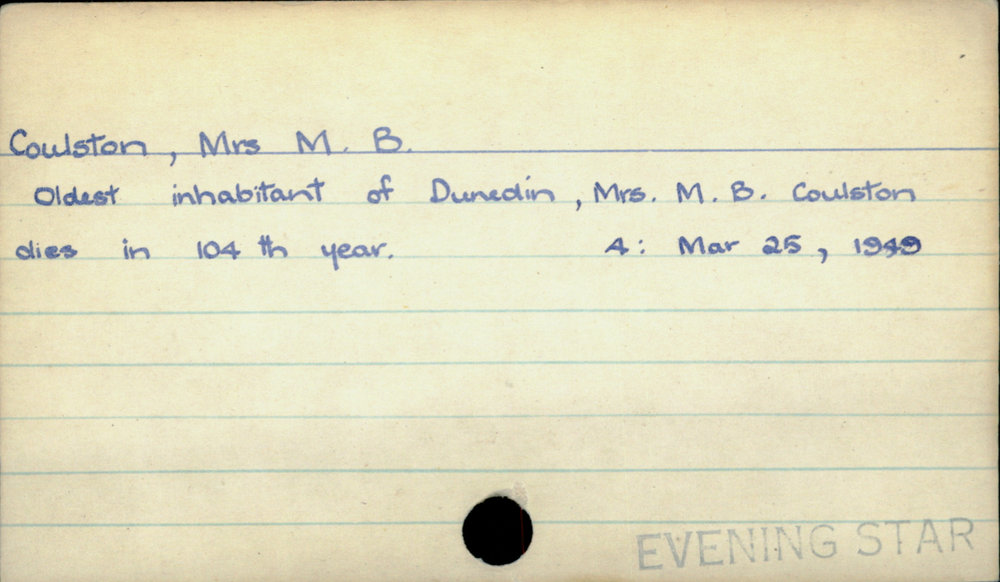 Coulston, Mrs M. B.
Oldest inhabitant of Dunedin, Mrs. M. B. Coulston
dies in 104 th year. 4: Mar 25, 1949
EVENING STAR